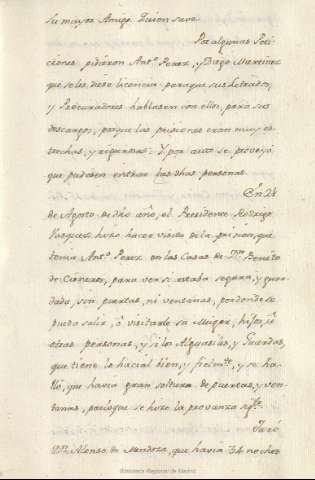 su mayor Amigo quien fuese
Por algunas Peti-
ciones pidieron Ant.º Perez, y Diego Martinez
que se les diese licencia para que sus Letrados,
y Procuradores hablasen con ellos, para sus
descargos, porque las prisiones eran muy es-
trechas, y rigurosas: Y por auto se proveyó
que pudiesen entrar las dhas personas.
En 24
de Agosto de dho año, el Presidente Rodrigo
Vazquez, hizo hacer visita de la prision, que
tenia Ant.º Perez en las Casas de Dⁿ Benito
de Cisneros, para ver si estaba segura, y guar-
dada, sin puertas, ni ventanas, por donde se
pueda salir, ó visitarle su Muger, hijos, ú
otras personas, y si lo Alguaciles, y Guardas,
que tiene lo hacian bien, y fielm.te, y se ha-
lló, que havia gran soltura de puertas, y ven-
tanas, para lo que se hizo la provanza sig.te
Juró
Dⁿ Alonso de Mendoza, que havia 34 noches
Biblioteca Regional de Madrid